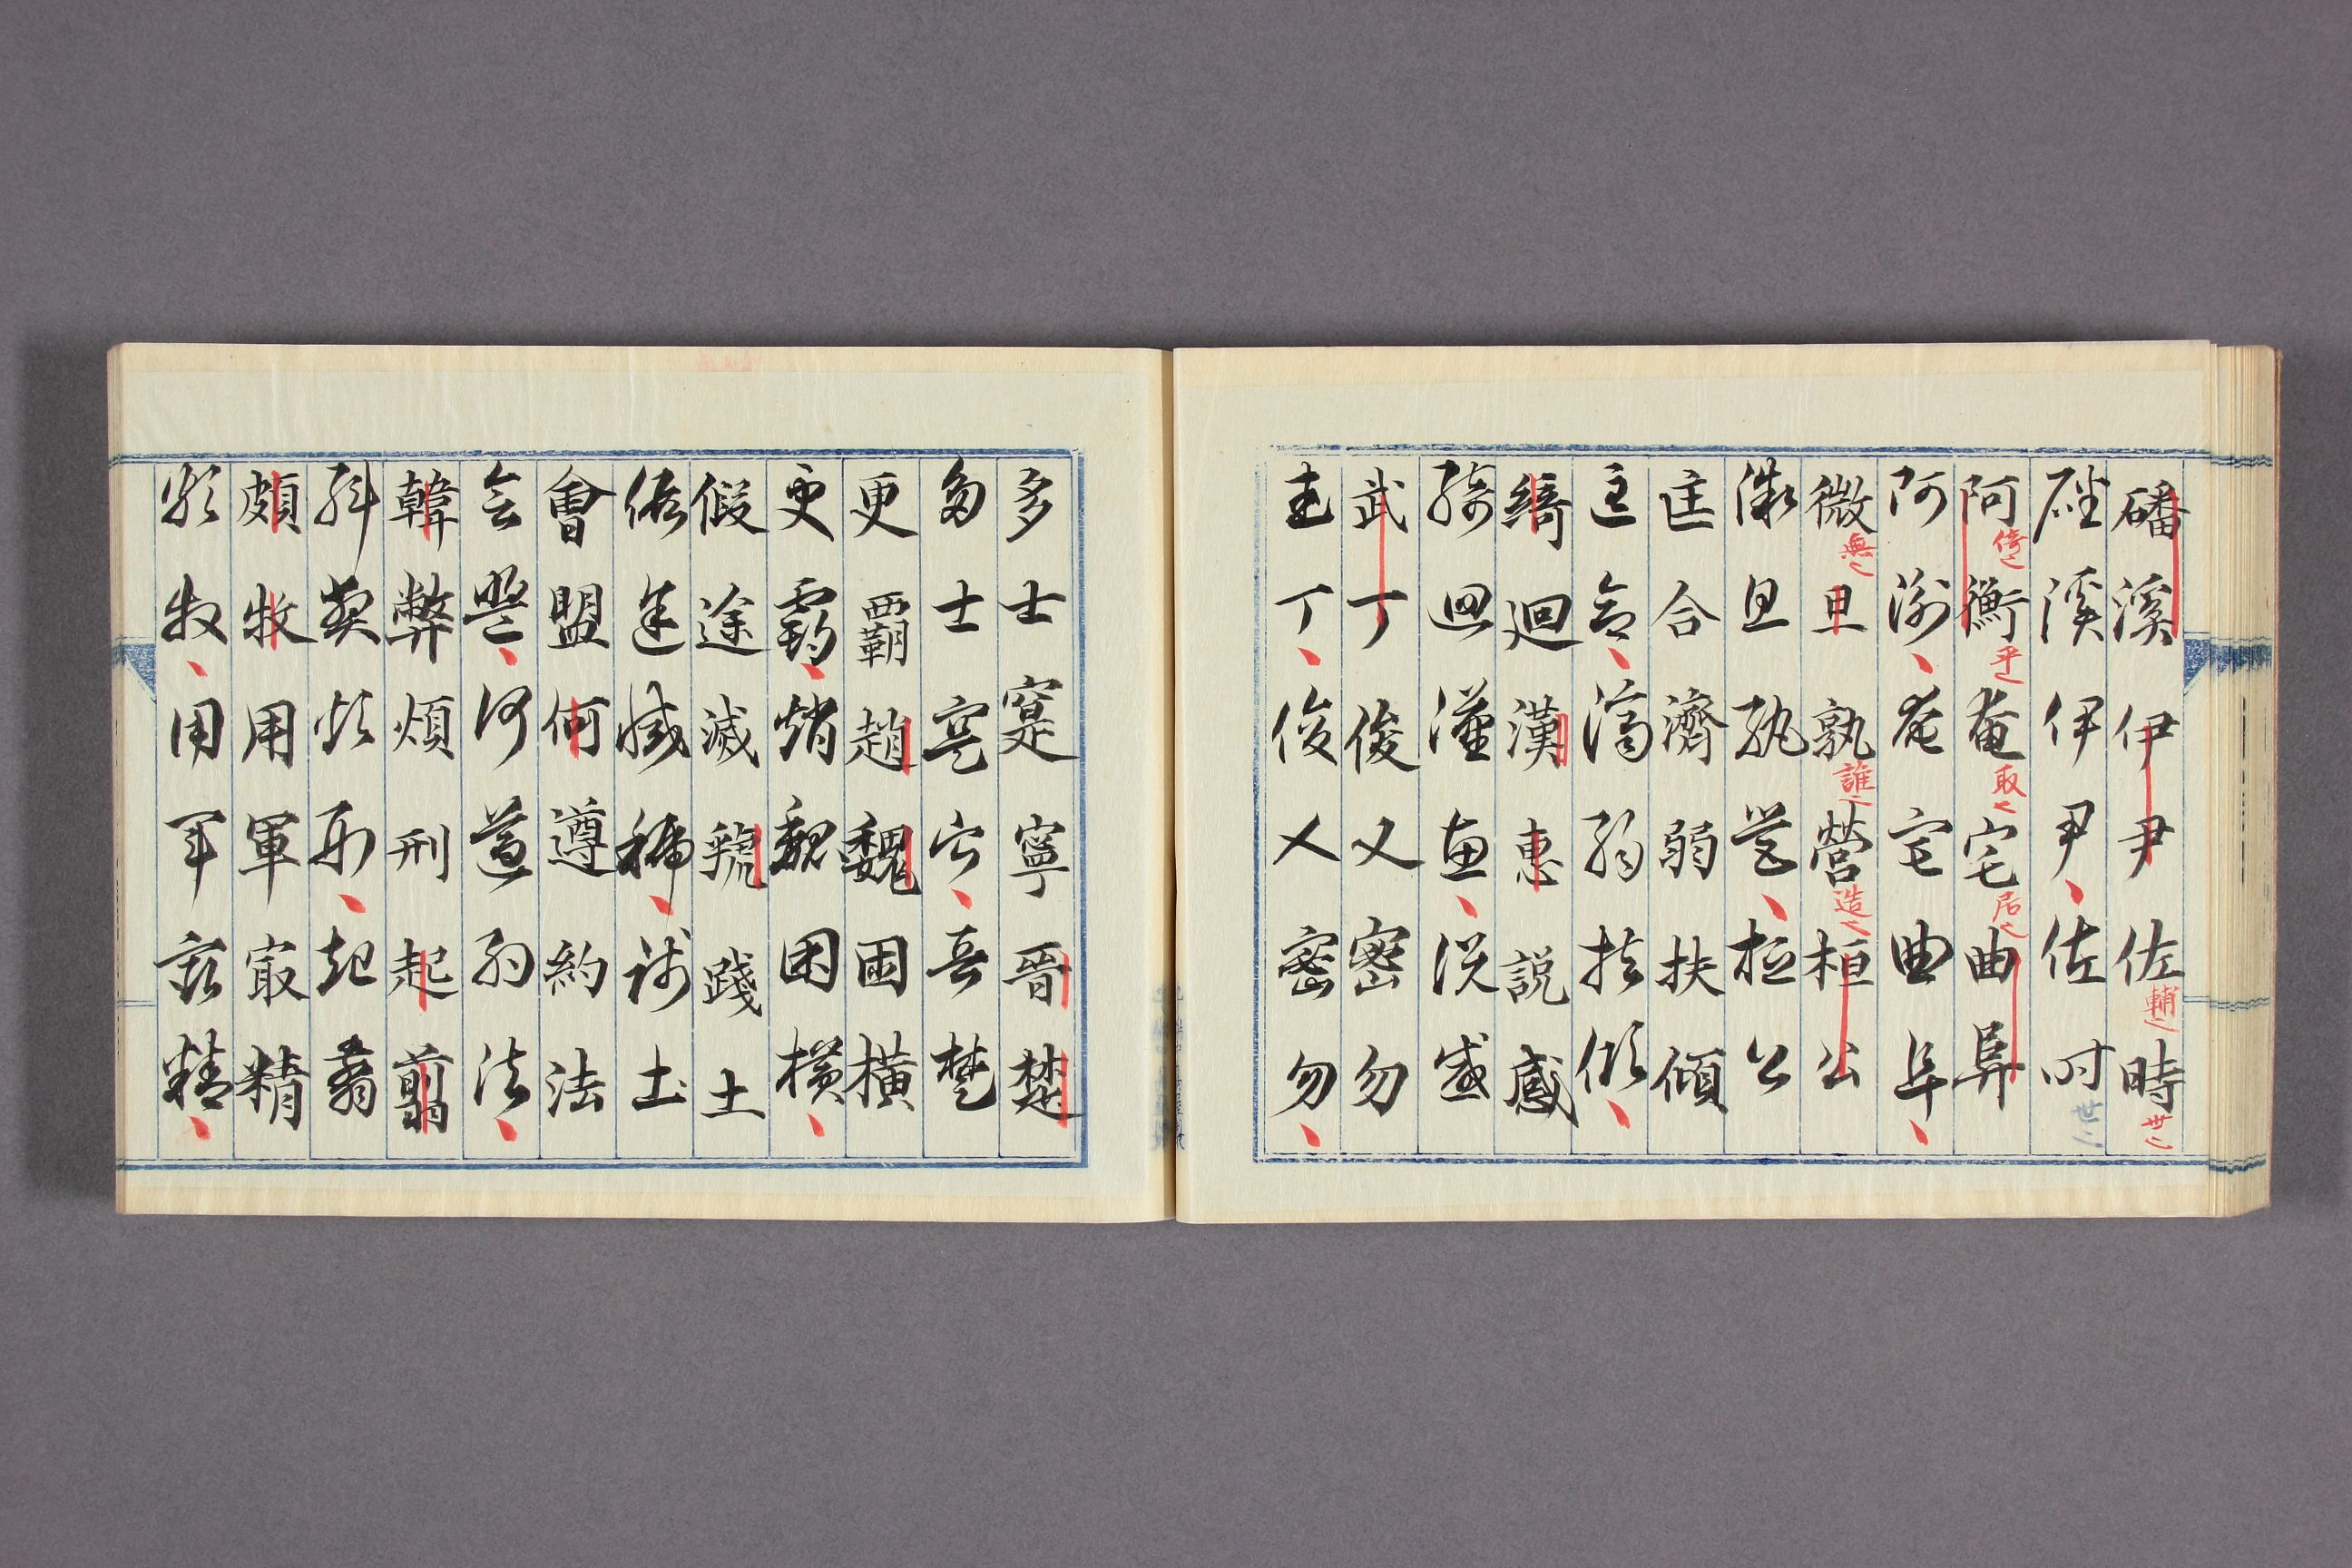 磻溪伊尹佐輔〻時世〻
磻溪伊尹佐時世〻
阿倚〻衡平〻奄取〻宅居〻曲阜
阿衡奄宅曲阜
微無〻旦孰誰〻營造〻桓公
微旦孰營桓公
匡合濟弱扶傾
匡合濟弱扶傾
綺迴漢惠說感
綺迴漢惠說感
武丁俊乂密勿
武丁俊乂密勿
多士寔寧晉楚
多士寔寧晉楚
更覇趙魏困橫
更覇趙魏困橫
假途滅虢踐土
假途滅虢踐土
會盟何遵約法
會盟何遵約法
韓弊煩刑起翦
韓弊煩刑起翦
頗牧用軍最精
頗牧用軍最精